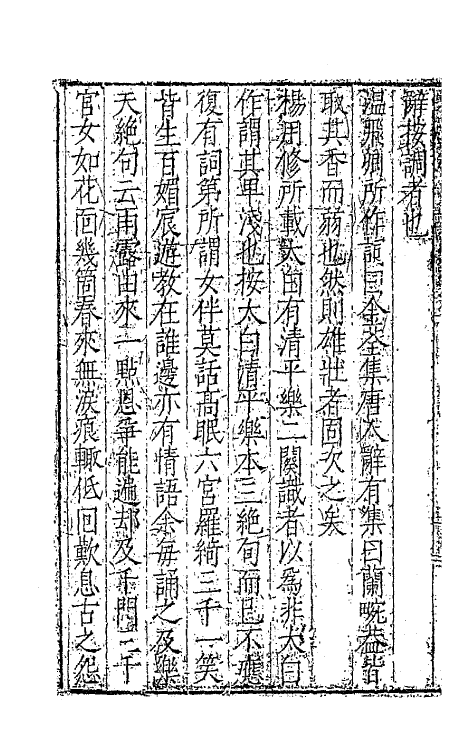 辭按調者也
溫飛卿所作詞曰金荃集唐人辭有集曰蘭畹葢皆
取其香而弱也然則雄壯者固次之矣
楊用修所載太白有清平樂二闋識者以爲非太白
作謂其卑淺也按太白清平樂本三絕句而已不應
復有詞第所謂女伴莫話高眠六宮羅綺三千一笑
皆生百媚宸遊教在誰邊亦有情語余每誦之及樂
天絕句云雨露由來一點恩爭能遍却及千門三千
宫女如花面幾箇春來無淚痕輒低回歎息古之怨